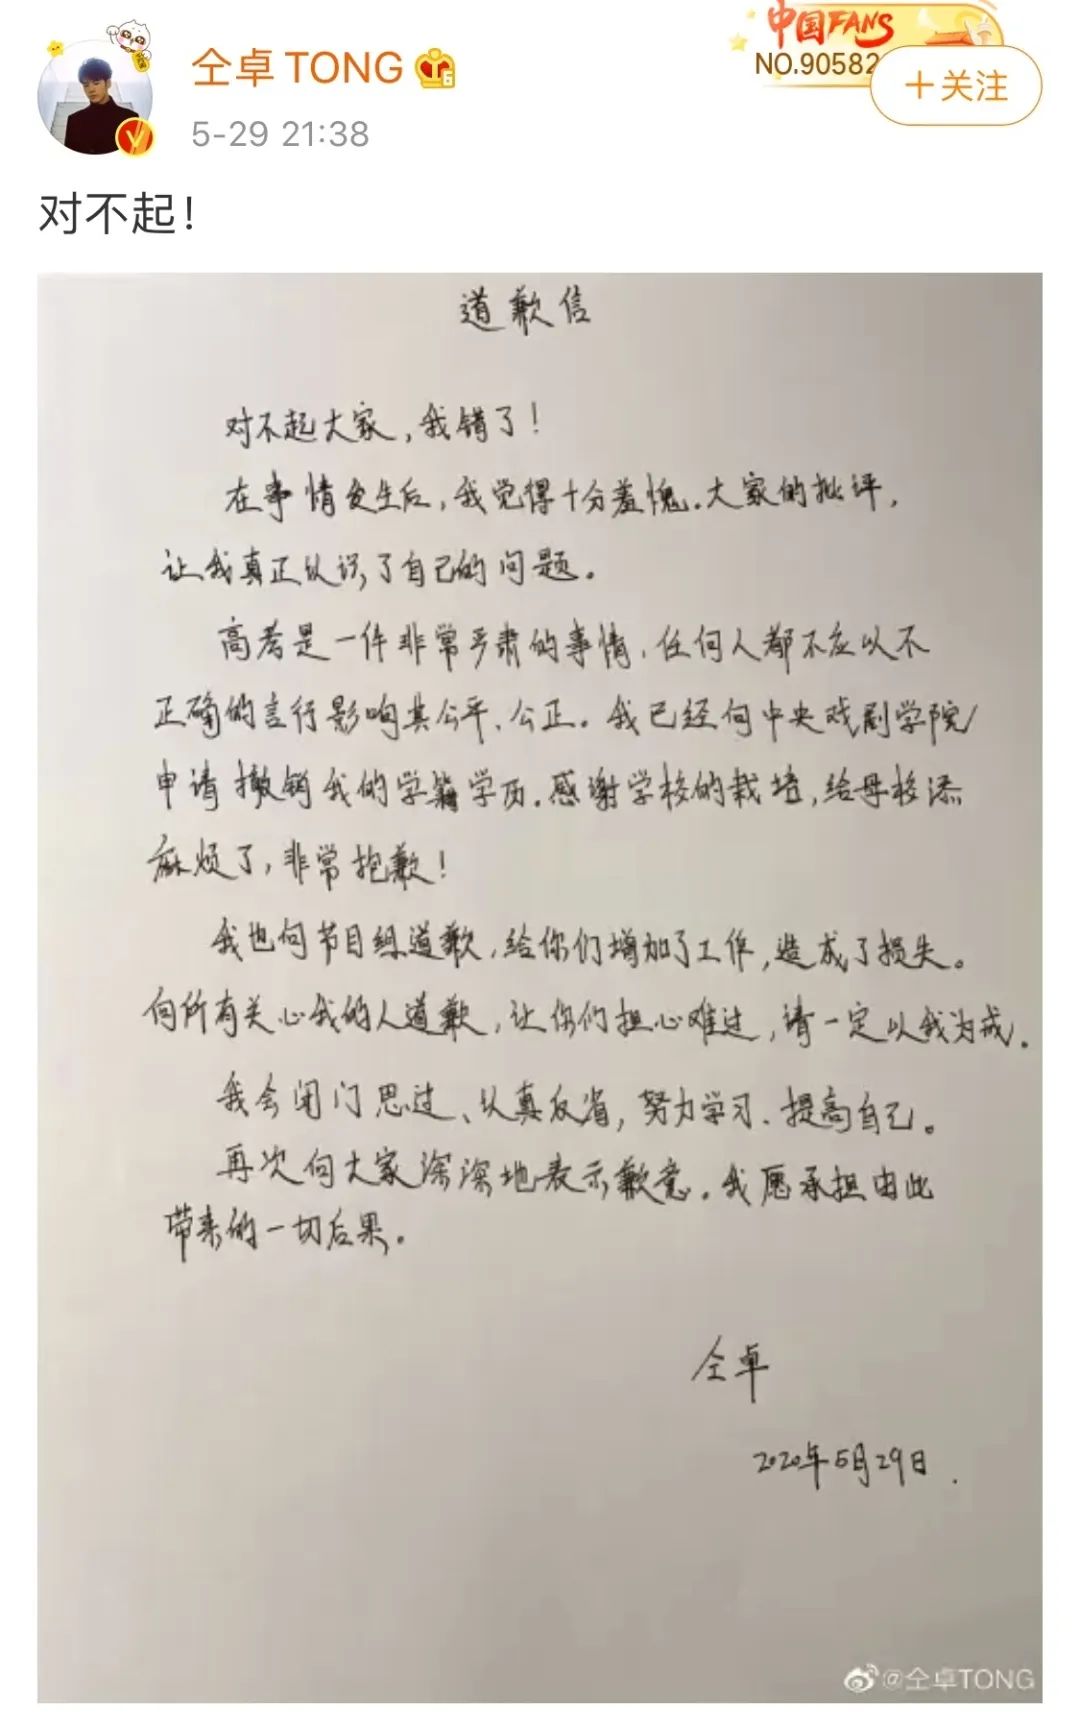 仝卓TONG
中国FANS
NO.90582
+关注
5-29 21:38
对不起!
道歉信
对不起大家,我错了!
在事情发生后,我觉得十分羞愧.大家的批评,
让我真正认识了自己的问题。
高考是一件非常严肃的事情,任何人都不应以不
正确的言行影响其公平、公正。我已经向中央戏剧学院
申请撤销我的学籍学历.感谢学校的栽培,给母校添
麻烦了,非常抱歉!
我也向节目组道歉,给你们增加了工作,造成了损失。
向所有关心我的人道歉,让你们担心难过,请一定以我为戒.
我会闭门思过、认真反省,努力学习、提高自己。
再次向大家深深地表示歉意.我愿承担由此
带来的一切后果。
仝卓
2020年5月29日.
@仝卓TONG